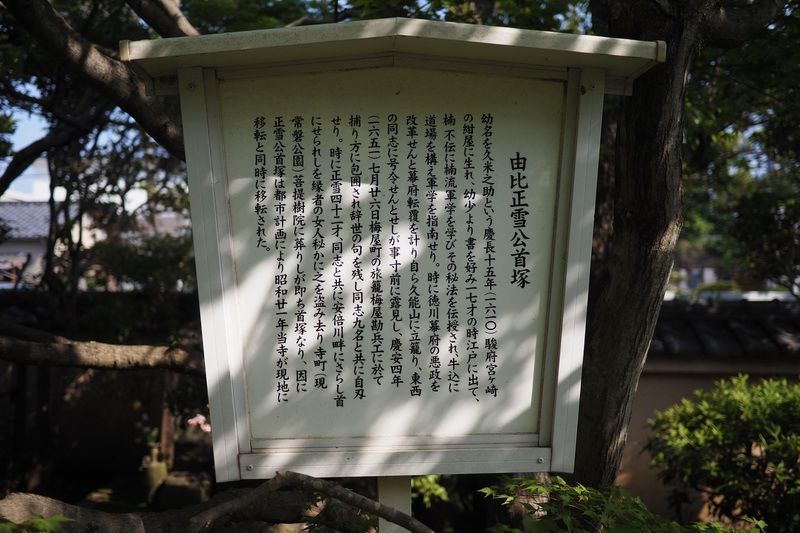 由比正雪公首塚
幼名を久米之助という慶長十五年（一六一〇）駿府宮ヶ崎
の紺屋に生れ、幼少より書を好み一七才の時江戸に出て、
楠不伝に楠流軍学を学びその秘法を伝授され、牛込に
道場を構え軍学を指南せり。時に徳川幕府の悪政を
改革せんと幕府転覆を計り自ら久能山に立籠り、東西
の同志に号令せんとせしが事寸前に露見し、慶安四年
（一六五一）七月廿六日梅屋町の旅籠梅屋勘兵エに於て
捕り方に包囲され辞世の句を残し同志九名と共に自刃
せり。時に正雪四十二才、同志と共に安倍川畔にさらし首
にせられしを縁者の女人秘かに之を盗み去り寺町（現
常磐公園）菩提樹院に葬りしが即ち首塚なり、因に
正雪公首塚は都市計画により昭和廿一年当寺が現地に
移転と同時に移転された。